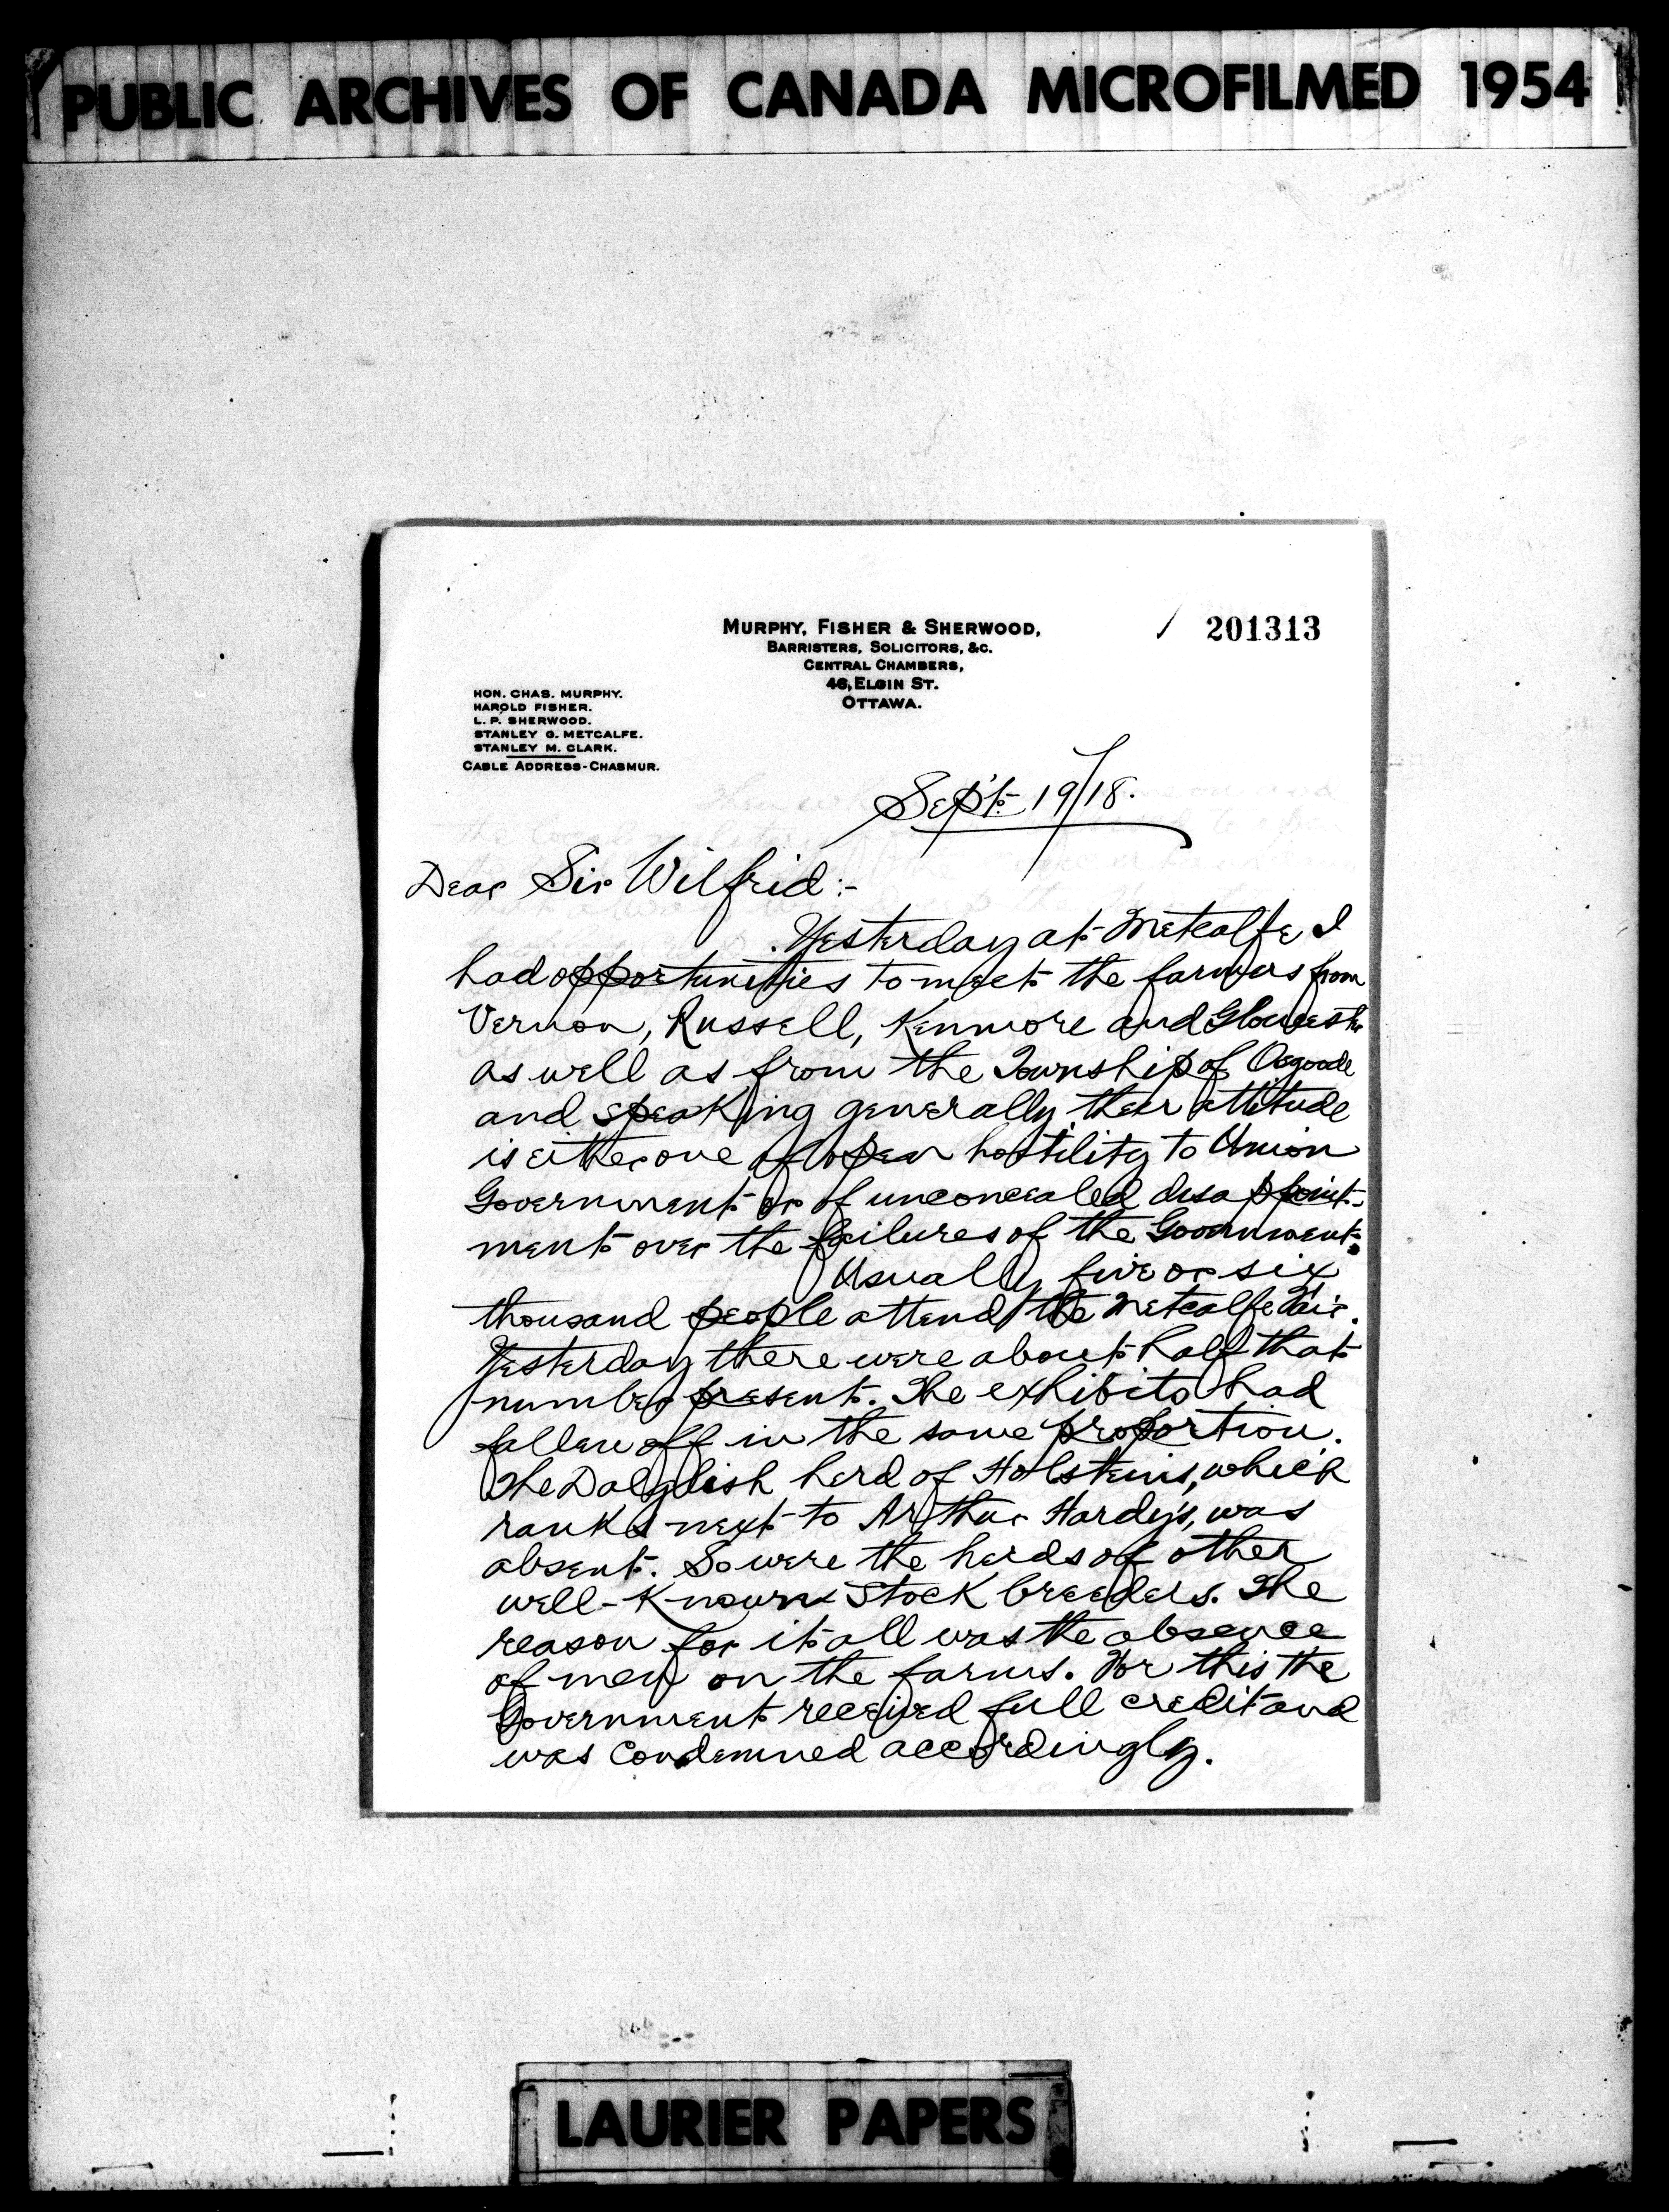 PUBLIC ARCHIVES OF CANADA MICROFILMED 1954
201313
MURPHY, FISHER & SHERWOOD,
BARRISTERS, SOLICITORS, &C.
CENTRAL CHAMBERS,
46, ELGIN ST.
OTTAWA.
HON. CHAS. MURPHY.
HAROLD FISHER.
L. P. SHERWOOD.
STANLEY G. METCALFE.
STANLEY M. CLARK.
CABLE ADDRESS-CHASMUR.
Sep't. 19/18.
Dear Sir Wilfrid:-
Yesterday at Metcalfe I
had opportunities to meet the farmers from
Vernon, Russell, Kenmore and Gloucester
as well as from the Township of Osgoode
and speaking generally, their attitude
is either one of open hostility to Union
Government or of unconcealed disappoint-
ment over the failures of the Government.
Usually five or six
thousand people attend the Metcalfe Fair.
Yesterday there were about half that
number present. The exhibits had
fallen off in the same proportion.
The Dalglish herd of Holsteins, which
ranks next to Arthur Hardy's, was
absent. So were the herds of other
well-known stock breeders. The
reason for it all was the absence
of men on the farms. For this the
Government received full credit and
was condemned accordingly.
LAURIER PAPERS